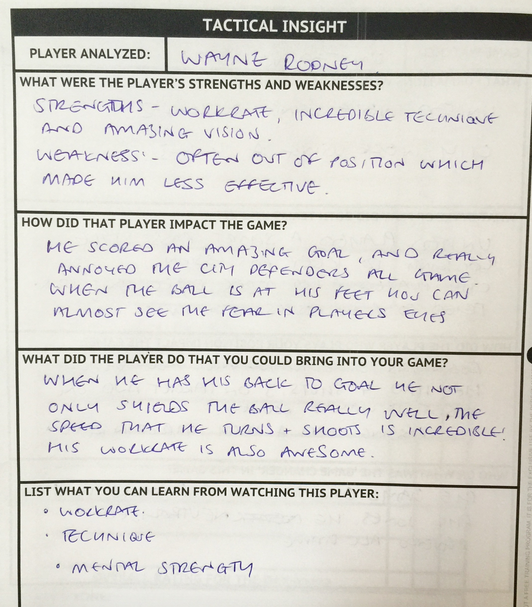 TACTICAL INSIGHT
PLAYER ANALYZED: WAYNE ROONEY
WHAT WERE THE PLAYER'S STRENGTHS AND WEAKNESSES?
STRENGTHS - WORKRATE, INCREDIBLE TECHNIQUE
AND AMAZING VISION.
WEAKNESS - OFTEN OUT OF POSITION WHICH
MADE HIM LESS EFFECTIVE.
HOW DID THAT PLAYER IMPACT THE GAME?
HE SCORED AN AMAZING GOAL, AND REALLY
ANNOYED THE CITY DEFENDERS ALL GAME.
WHEN THE BALL IS AT HIS FEET YOU CAN
ALMOST SEE THE FEAR IN PLAYERS EYES
WHAT DID THE PLAYER DO THAT YOU COULD BRING INTO YOUR GAME?
WHEN HE HAS HIS BACK TO GOAL HE NOT
ONLY SHIELDS THE BALL REALLY WELL, THE
SPEED THAT HE TURNS + SHOOTS IS INCREDIBLE!
HIS WORKRATE IS ALSO AWESOME.
LIST WHAT YOU CAN LEARN FROM WATCHING THIS PLAYER:
• WORKRATE.
• TECHNIQUE
• MENTAL STRENGTH